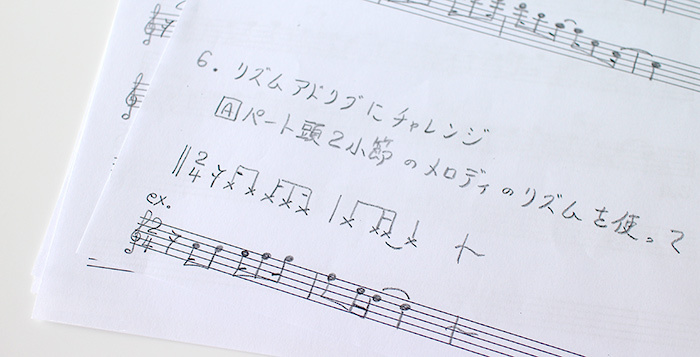 6. リズムアドリブにチャレンジ
Aパート頭2小節のメロディのリズムを使って
2
4
ex.
2
4